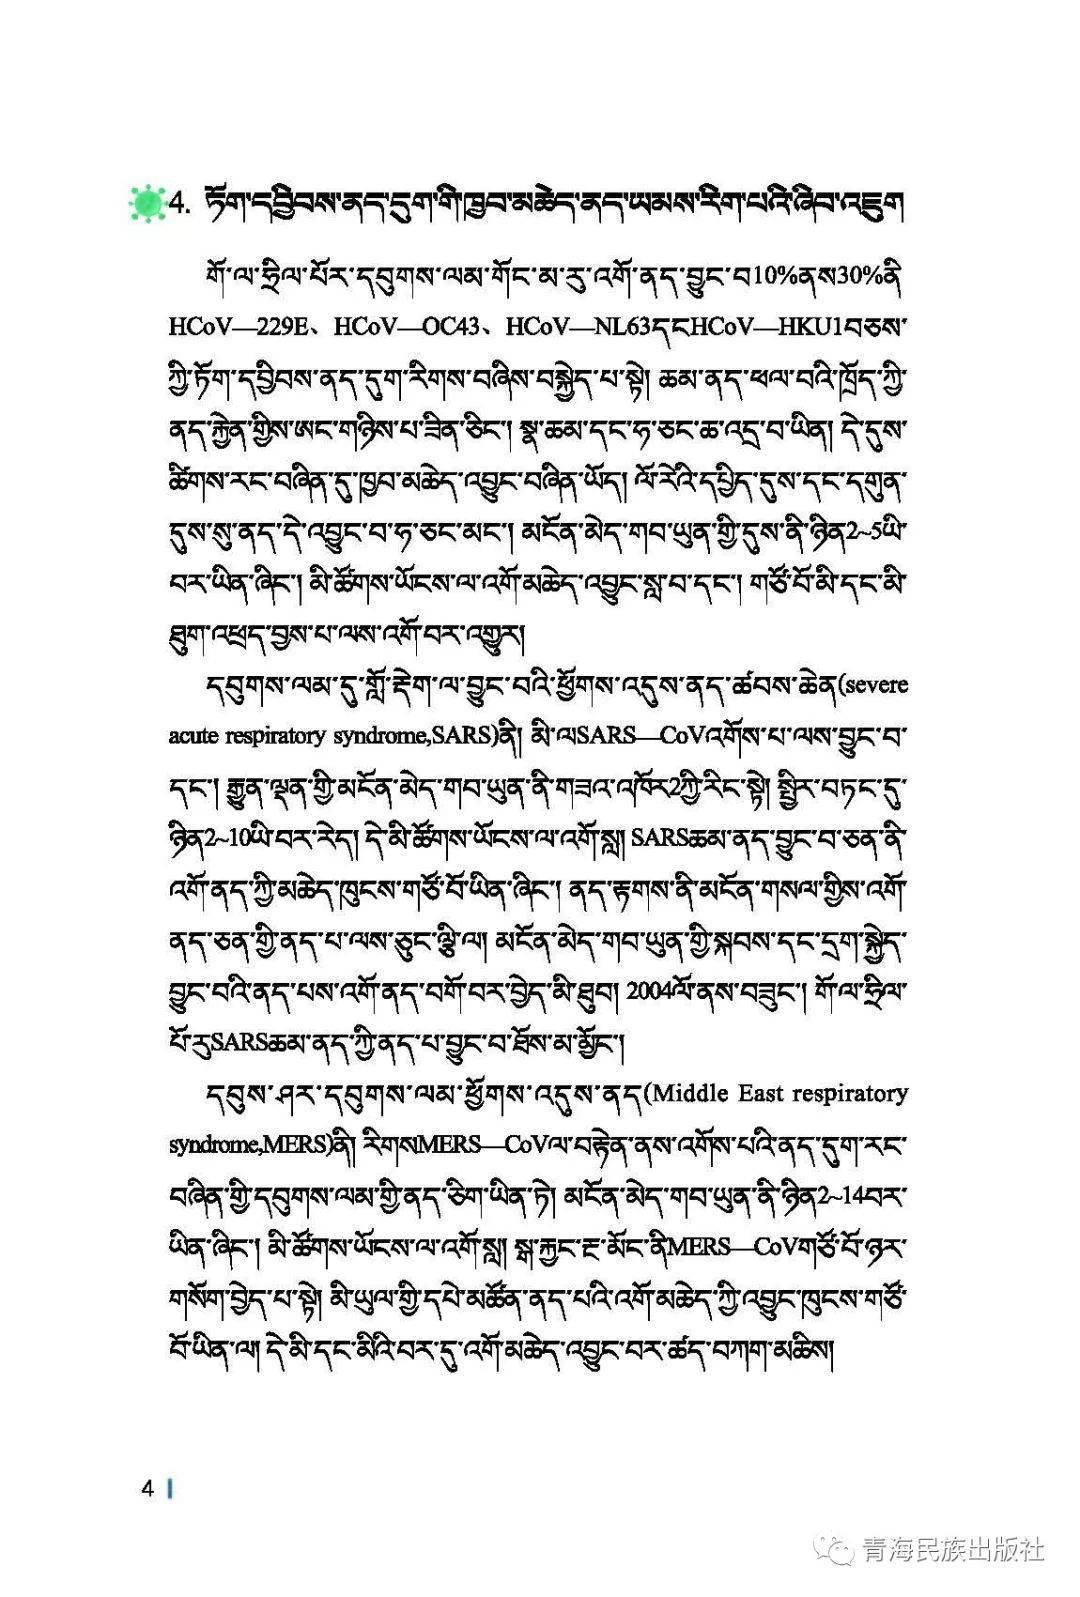 4. ཏོག་དབྱིབས་ནད་དུག་གི་ཁྱབ་མཆེད་ནད་ཡམས་རིག་པའི་ཞིབ་འཇུག
གོ་ལ་ཧྲིལ་པོར་དབུགས་ལམ་གོང་མ་རུ་འགོ་ནད་བྱུང་བ10%ནས30%ནི
HCoV—229E、HCoV—OC43、HCoV—NL63དངHCoV—HKU1བཅས་
ཀྱི་ཏོག་དབྱིབས་ནད་དུག་རིགས་བཞིས་བསྐྱེད་པ་སྟེ། ཆམ་ནད་ཕལ་བའི་ཁྲོད་ཀྱི་
ནད་རྐྱེན་གྱིས་ཨང་གཉིས་པ་ཟིན་ཅིང་། སྣ་ཆམ་དང་ཧ་ཅང་ཆ་འདྲ་བ་ཡིན། དེ་དུས་
ཚིགས་རང་བཞིན་དུ་ཁྱབ་མཆེད་འབྱུང་བཞིན་ཡོད། ལོ་རེའི་དཔྱིད་དུས་དང་དགུན་
དུས་སུ་ནད་དེ་འབྱུང་བ་ཧ་ཅང་མང་། མངོན་མེད་གབ་ཡུན་གྱི་དུས་ནི་ཉིན2~5ཡི་
བར་ཡིན་ཞིང་། མི་ཚོགས་ཡོངས་ལ་འགོ་མཆེད་འབྱུང་སླ་བ་དང་། གཙོ་བོ་མི་དང་མི་
ཐུག་འཕྲད་བྱས་པ་ལས་འགོ་བར་འགྱུར།
དབུགས་ལམ་དུ་གློ་རྡེག་ལ་བྱུང་བའི་ཕྱོགས་འདུས་ནད་ཚབས་ཆེན(severe
acute respiratory syndrome,SARS)ནི། མི་ལSARS—CoVའགོས་པ་ལས་བྱུང་བ་
དང་། རྒྱུན་ལྡན་གྱི་མངོན་མེད་གབ་ཡུན་ནི་གཟའ་འཁོར2ཀྱི་རིང་སྟེ། སྤྱིར་བཏང་དུ་
ཉིན2~10ཡི་བར་རེད། དེ་མི་ཚོགས་ཡོངས་ལ་འགོ་སླ། SARSཆམ་ནད་བྱུང་བ་ཅན་ནི་
འགོ་ནད་ཀྱི་མཆེད་ཁུངས་གཙོ་བོ་ཡིན་ཞིང་། ནད་རྟགས་ནི་མངོན་གསལ་གྱིས་འགོ་
ནད་ཅན་གྱི་ནད་པ་ལས་ཅུང་ལྕི་ལ། མངོན་མེད་གབ་ཡུན་གྱི་སྐབས་དང་དྲག་སྐྱེད་
བྱུང་བའི་ནད་པས་འགོ་ནད་བགོ་བར་བྱེད་མི་ཐུབ། 2004ལོ་ནས་བཟུང་། གོ་ལ་ཧྲིལ་
པོ་རུSARSཆམ་ནད་ཀྱི་ནད་པ་བྱུང་བ་ཐོས་མ་མྱོང་།
དབུས་ཤར་དབུགས་ལམ་ཕྱོགས་འདུས་ནད(Middle East respiratory
syndrome,MERS)ནི། རིགསMERS—CoVལ་བརྟེན་ནས་འགོས་པའི་ནད་དུག་རང་
བཞིན་གྱི་དབུགས་ལམ་གྱི་ནད་ཅིག་ཡིན་ཏེ། མངོན་མེད་གབ་ཡུན་ནི་ཉིན2~14བར་
ཡིན་ཞིང་། མི་ཚོགས་ཡོངས་ལ་འགོ་སླ། སྒ་རྐྱང་རྔ་མོང་ནིMERS—CoVགཙོ་བོ་ཉར་
གསོག་བྱེད་པ་སྟེ། མི་ཡུལ་གྱི་དཔེ་མཚོན་ནད་པའི་འགོ་མཆེད་ཀྱི་འབྱུང་ཁུངས་གཙོ་
བོ་ཡིན་ལ། དེ་མི་དང་མིའི་བར་དུ་འགོ་མཆེད་འབྱུང་བར་ཚད་བཀག་མཆིས།
4
青海民族出版社